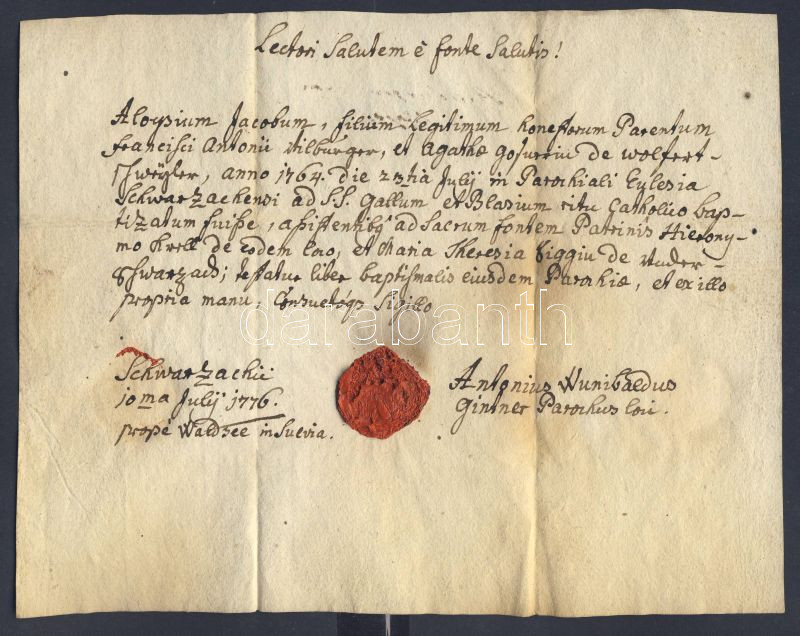 Lectori Salutem è fonte Salutis!
Aloysium Jacobum, filium Legitimum honestorum Parentum
Francisci Antonii Vilburger, et Agathæ de Wolfert-
schweyler, anno 1764. die 23tia Julij in Parochiali Eglesia
Schwarzachensi ad S.S. Gallum et Blasium ritu Catholico bap-
tizatum fuisse, assistentibq ad Sacrum fontem Patrinis Hierony-
mo Krell de eodem loco, et Maria Theresia de Under-
schwarzach; testatur liber baptismalis eiusdem Parochiæ, et ex illo
propria manu, Consuetoqz Sigillo
darabanth
Schwarzachii
10ma Julij 1776.
propè Waldsee in Suevia.
Antonius Wunibaldus
Gintner Parochus loci.